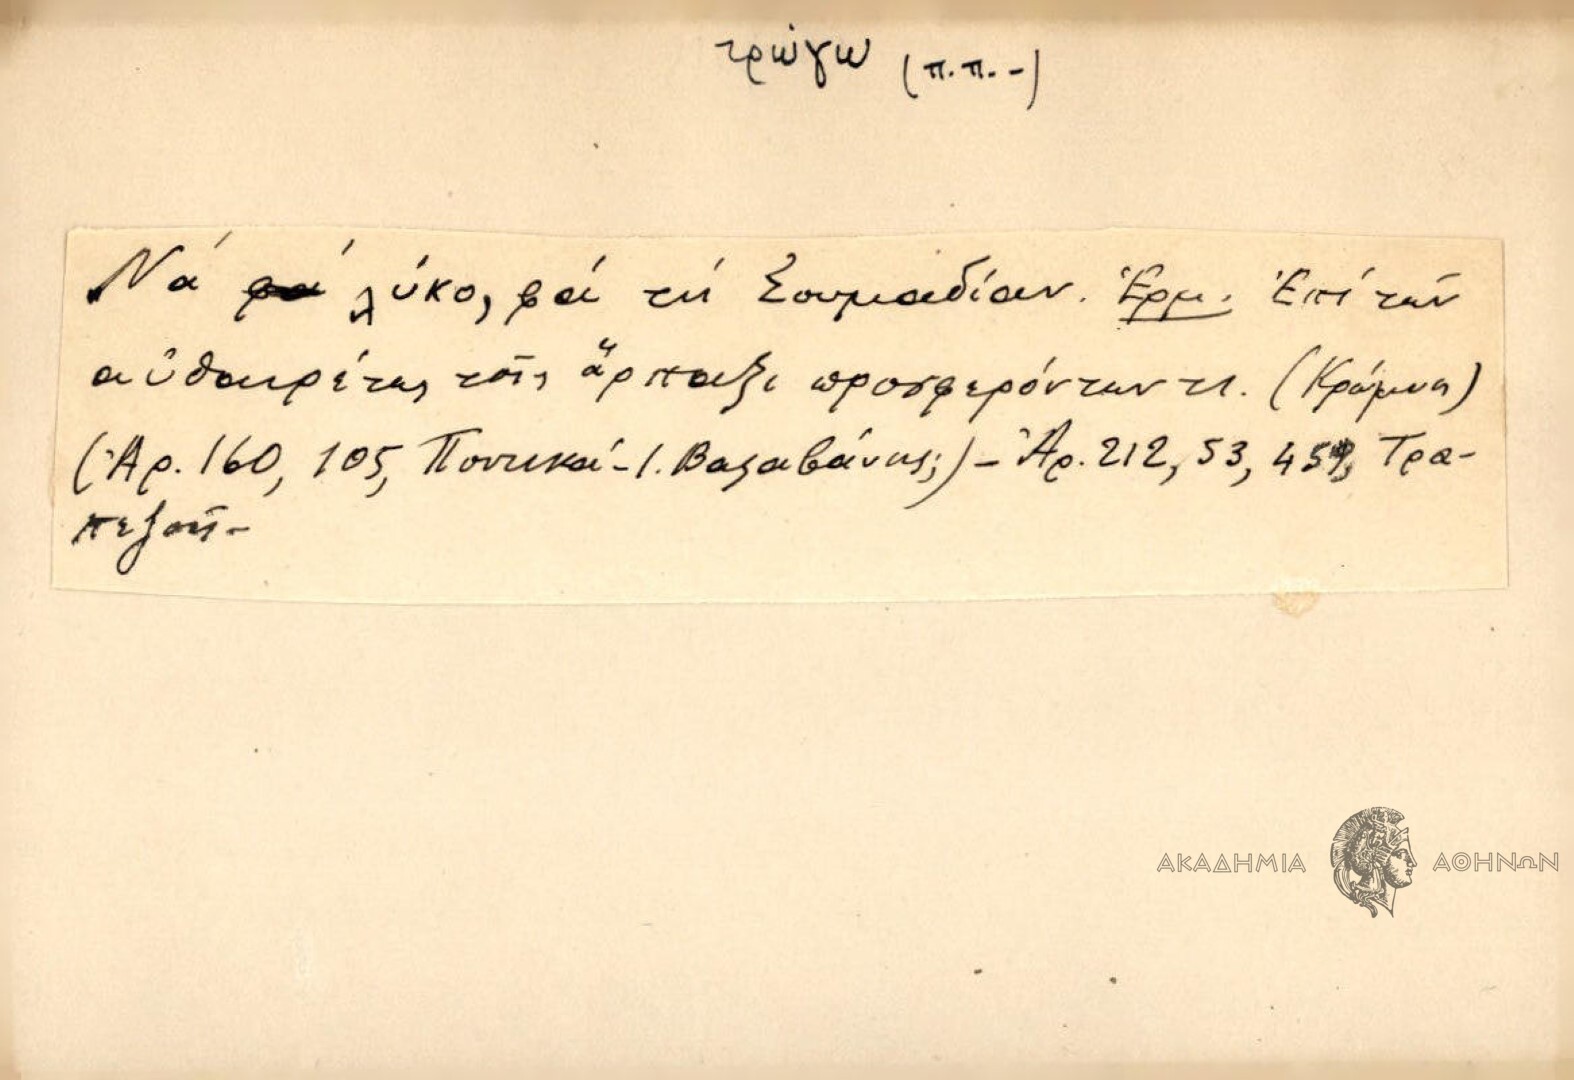 τρώγω (π.π.-)
Νά λύκο, φά τή Σουμαδίαν. Ἑρμ. Ἐπί τῶν
αὐθαιρέτως τοῖς ἅρπαξι προσφερόντων τι. (Κρώμνη)
(Ἀρ. 160, 105, Ποντικά - Ι. Βαλαβάνης;) - Ἀρ. 212, 53, 459, Τρα-
πεζοῦ-
ΑΚΑΔΗΜΙΑ ΑΘΗΝΩΝ